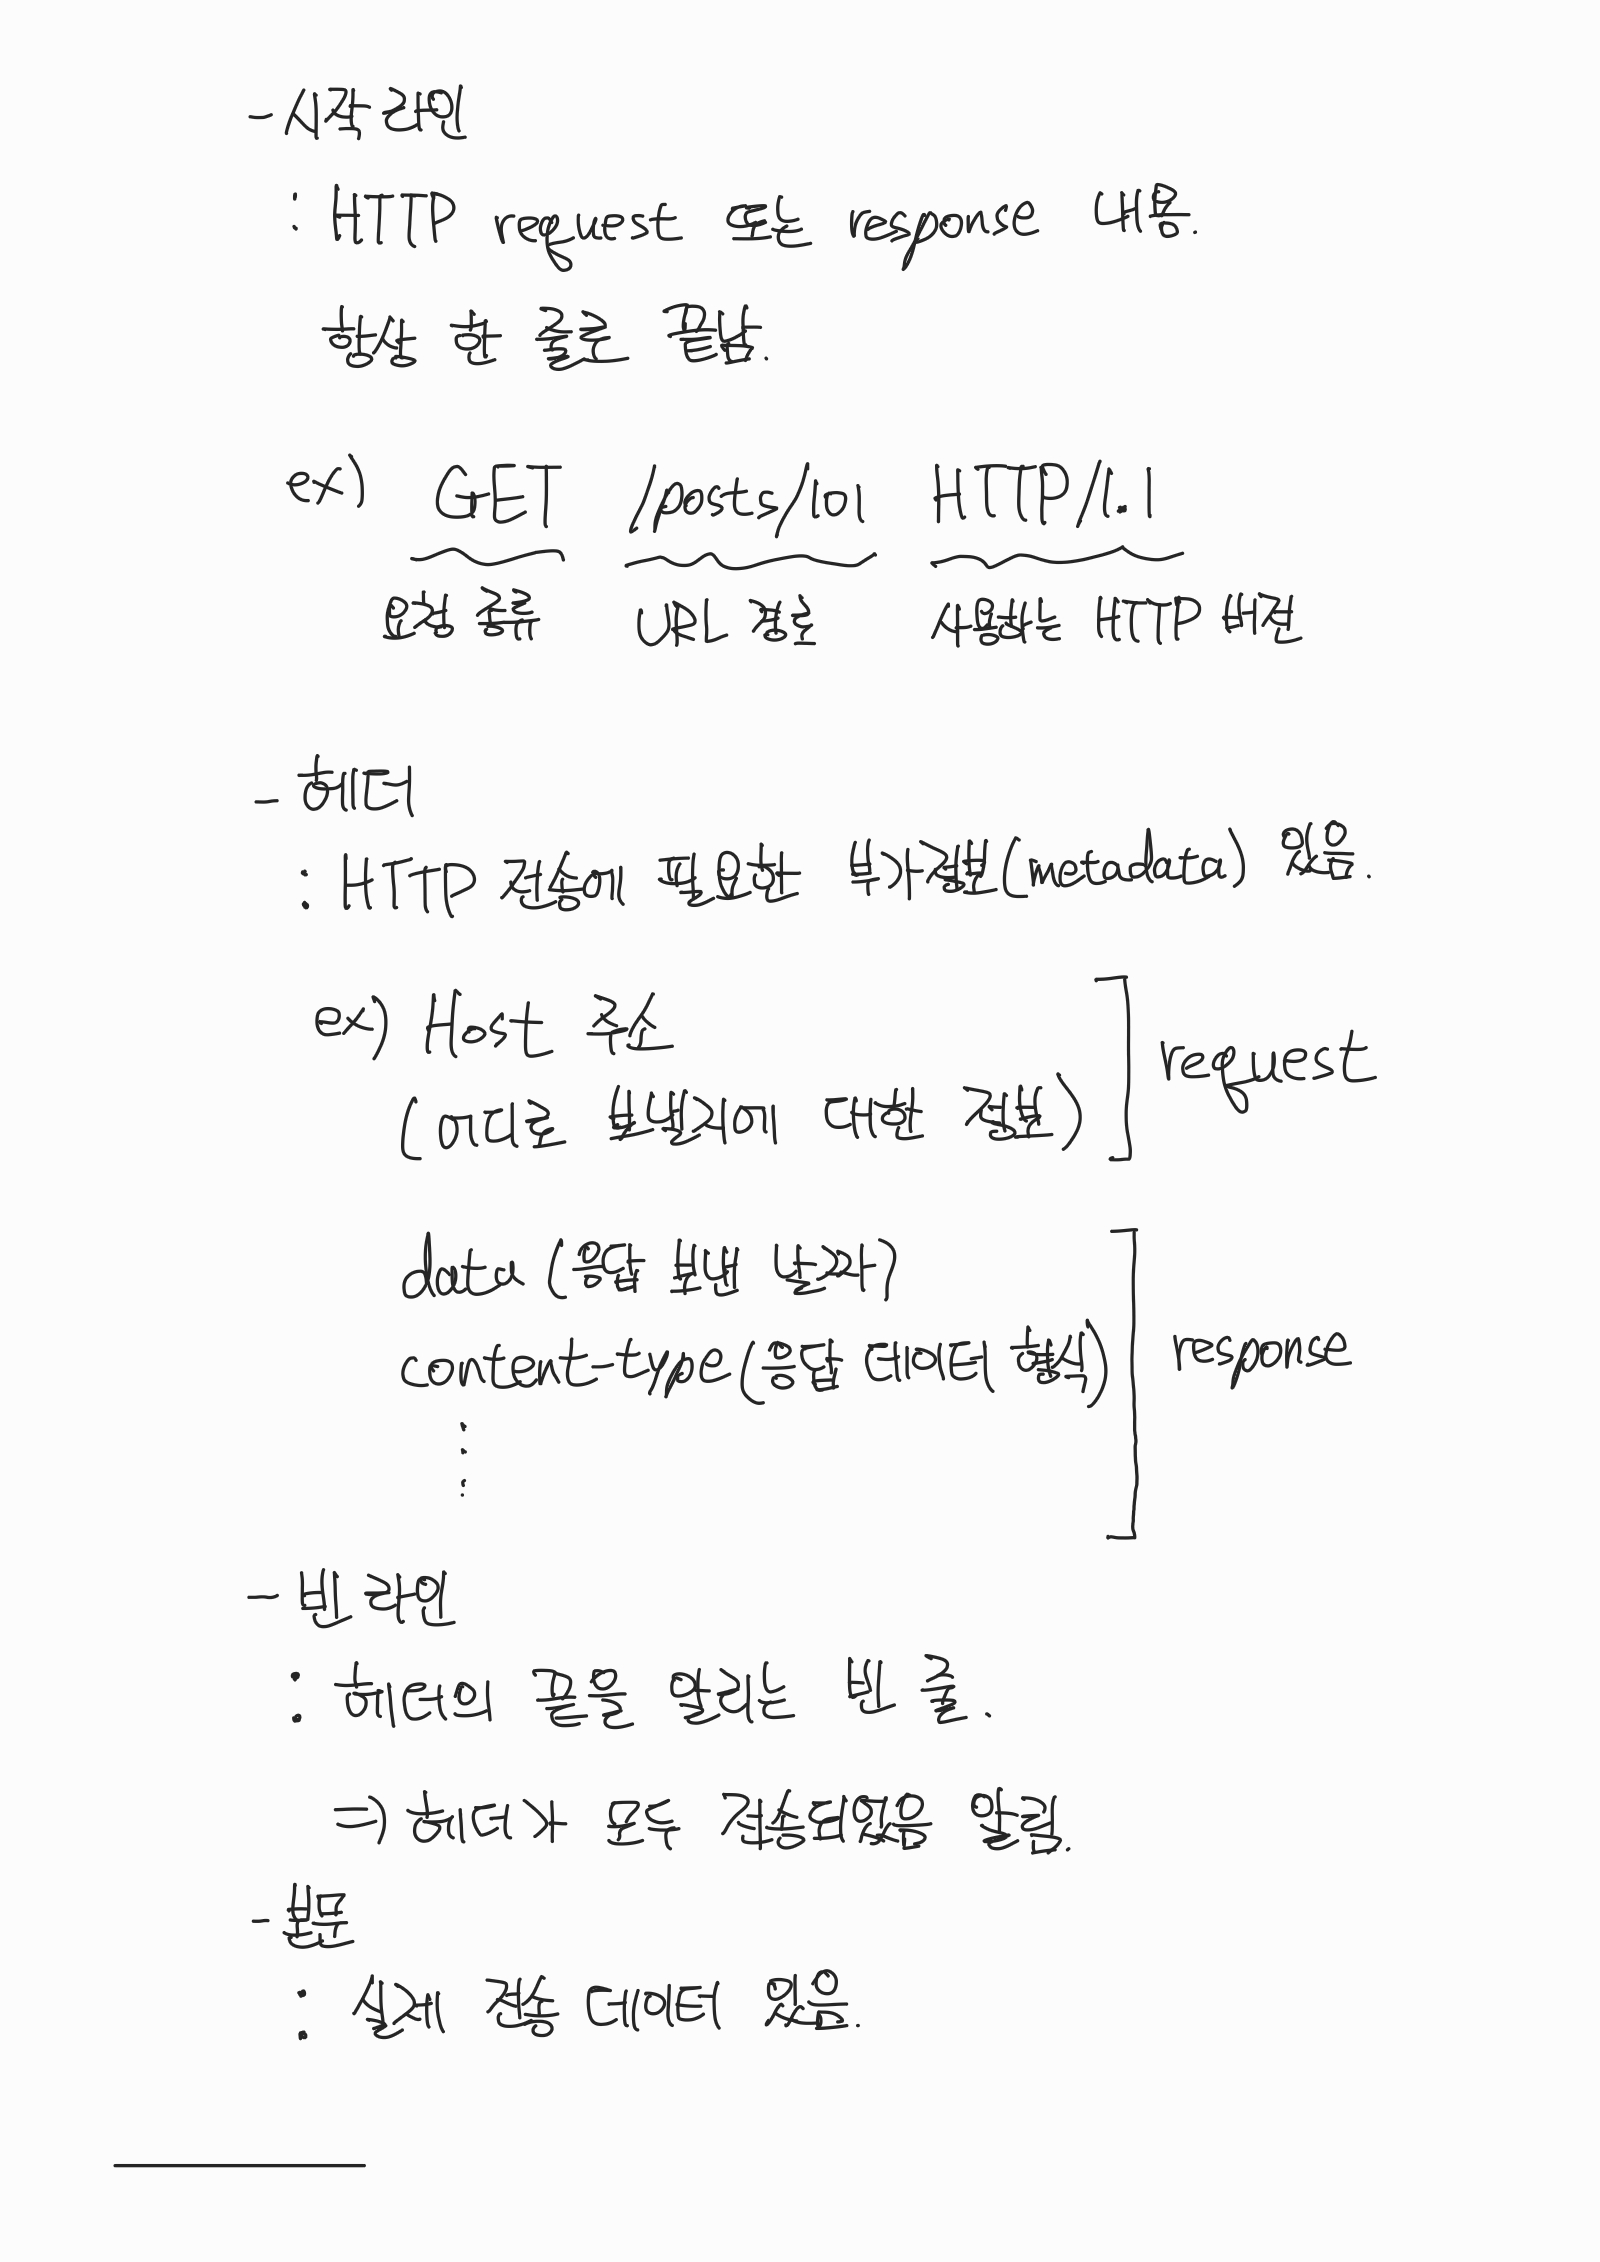 - 시작 라인
: HTTP request 또는 response 내용.
항상 한 줄로 끝남.
ex) GET /posts/101 HTTP/1.1
요청 종류 URL 경로 사용하는 HTTP 버전
- 헤더
: HTTP 전송에 필요한 부가정보(metadata) 있음.
ex) Host 주소
(어디로 보낼지에 대한 정보)
request
data (응답 보낸 날짜)
content-type(응답 데이터 형식)
response
⋮
- 빈 라인
: 헤더의 끝을 알리는 빈 줄.
=> 헤더가 모두 전송되었음 알림.
- 본문
: 실제 전송 데이터 있음.